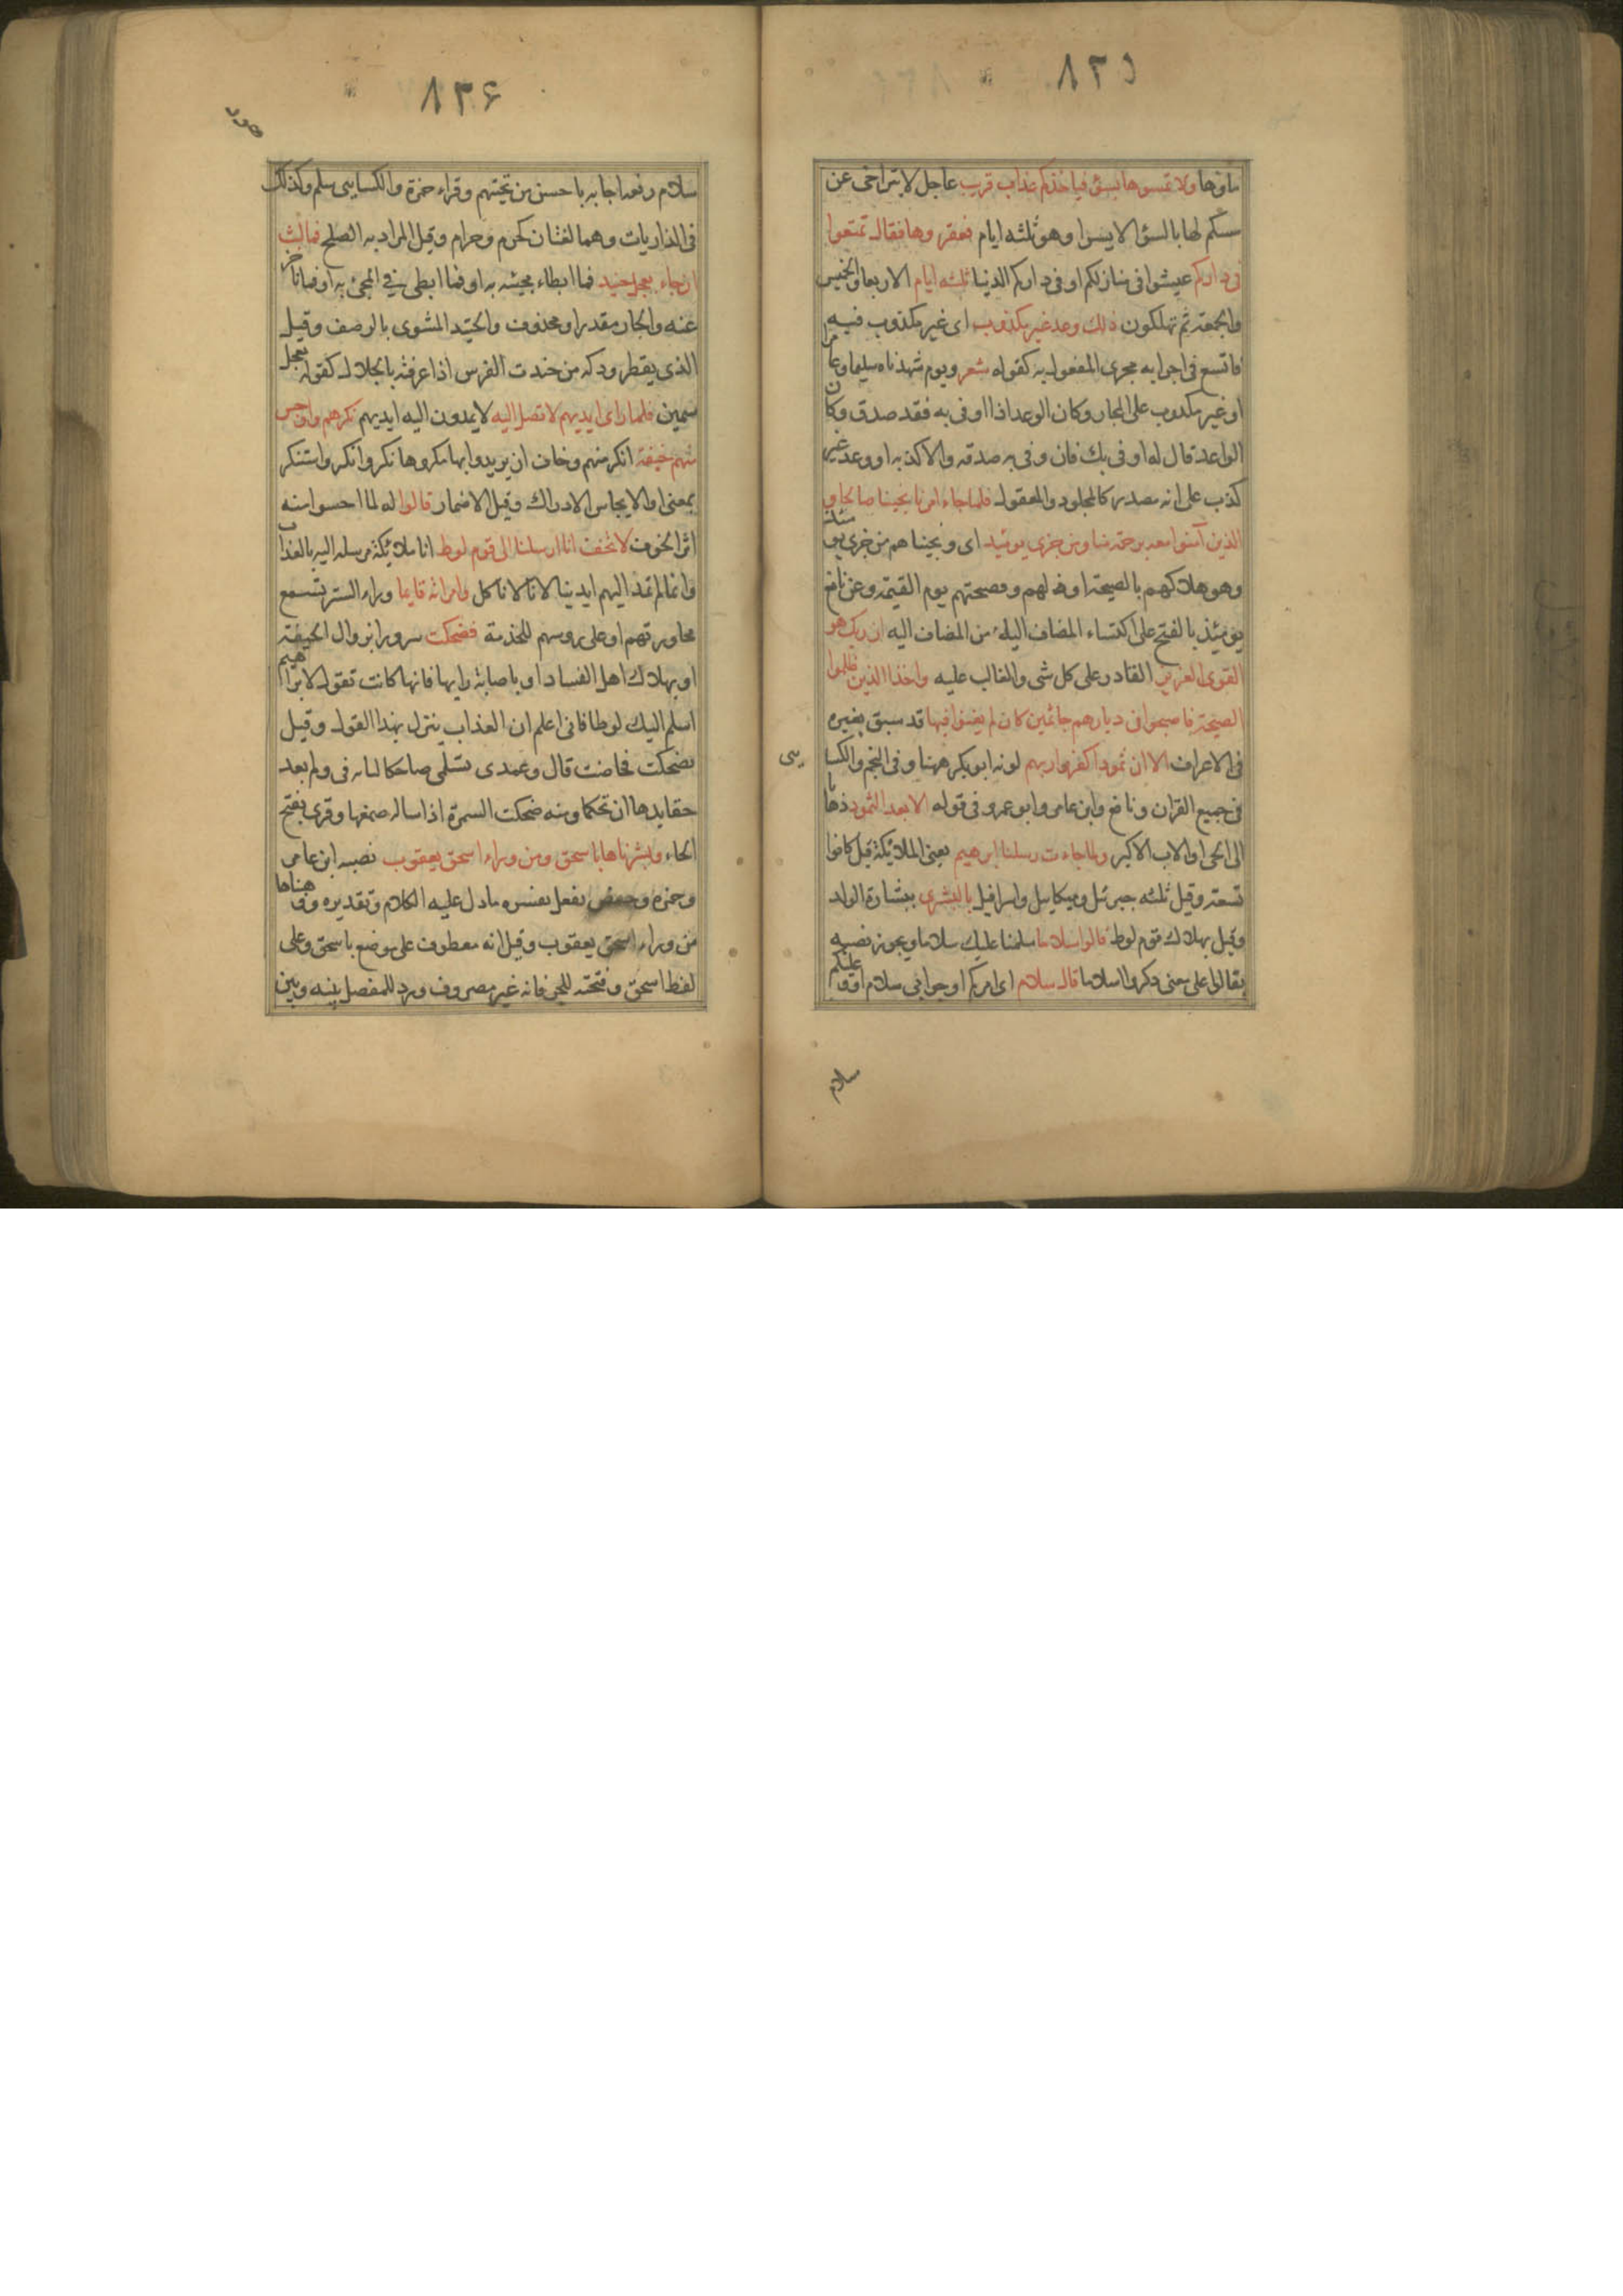 ٨٣٥
ماءها ولا تمسوها بسوء فياخذكم عذاب قريب عاجل لا يتراخى عن
مسكم لها بالسوء الا يسيرا وهو ثلثه ايام فعقروها فقال تمتعوا
فى داركم عيشوا فى منازلكم او فى داركم الدنيا ثلثه ايام الاربعا والخميس
والجمعة ثم تهلكون ذلك وعد غير مكذوب اى غير مكذوب فيه
فاتسع فى اجرابه مجرى المفعول به كقوله شعر ويوم شهدناه سليما وعامرا
او غير مكذوب على المجاز وكان الوعد اذا اوفى به فقد صدق وكان
الواعد قال له اوفى بك فان وفى به صدقه والا كذبه او وعد غير
كذب على انه مصدر كالمجلود والمعقول فلما جاء امرنا نجينا صالحا و
الذين آمنوا معه برحمة منا ومن خزى يومئيذ اى ونجيناهم من خزى يومئذ
وهو هلاكهم بالصيحة او فضيحتهم يوم القيمة وعن نافع
يومئذ بالفتح على اكتساء المضاف اليه من المضاف اليه ان ربك هو
القوى العزيز القادر على كل شى والغالب عليه واخذ الذين ظلموا
الصيحة فاصبحوا فى ديارهم جاثمين كان لم يغنوا فيها قد سبق بغيره
فى الاعراف الا ان ثمود اكفروا ربهم لونه ابو بكر ههنا وفى النجم والكسا
يى
فى جميع القران ونافع وابن عامر وابو عمرو فى قوله الا بعد الثمود ذهابا
الى الحى او الاب الاكبر ولما جاءت رسلنا ابرهيم يعنى الملائكة قيل كانوا
تسعة وقيل ثلثه جبرئل وميكايل واسرافيل بالبشرى ببشارة الولد
وقيل بهلاك قوم لوط قالوا سلاما سلمنا عليك سلاما ويجوز نصبه
بقالوا على معنى ذكروا سلاما قال سلام اى امركم او جوابى سلام او وعليكم
سلام
٨٣٦
هود
سلام رفعه اجابه باحسن من تحيتهم وقراء حمزة والكسايى سلم وكذلك
فى الذاريات وهما لغتان كحرم وحرام وقيل المراد به الصلح فما لبث
ان جاء بعجل حنيذ فما ابطاء مجيئه به او فما ابطى فى المجئ به او فما تاخر
عنه والجار مقدر او محذوف والحنيذ المشوى بالرصف وقيل
الذى يقطر ودكه من حنذت الفرس اذا عرفته بالجلال كقوله بعجل
سمين فلما راى ايديهم لا تصل اليه لا يمدون اليه ايديهم نكرهم واوجس
منهم خيفة انكر منهم وخاف ان يريدوا بها مكروها نكر وانكر واستنكر
بمعنى والايجاس الادراك وقيل الاضمار قالوا له لما احسوا منه
اثر الخوف لا تخف انا ارسلنا الى قوم لوط انا ملائكة مرسلة اليه بالعذاب
وانما لم تمد اليهم ايدينا لانا لا ناكل وامراته قايما وراء الستر تسمع
محاورتهم او على روسهم للخدمة فضحكت سرورا بزوال الخيفة
او بهلاك اهل الفساد او باصابة رايها فانها كانت تقول لابراهيم
اسلم اليك لوطا فانى اعلم ان العذاب ينزل بهذا القول وقيل
فضحكت فحاضت قال وعهدى بسلمى صاحكا لبابه فى ولم بعد
حقا يدها ان تحكما ومنه ضحكت السمرة اذا سال صمغها وقرى بفتح
الحاء وبشرناها باسحق ومن وراء اسحق يعقوب نصبه ابن عامر
وحمزه وحفص بفعل يفسره ما دل عليه الكلام وتقديره ووهبناها
من وراء اسحق يعقوب وقيل انه معطوف على موضع باسحق وعلى
لفظ اسحق وفتحته للجر فانه غير مصروف ورد للفصل بينه وبين